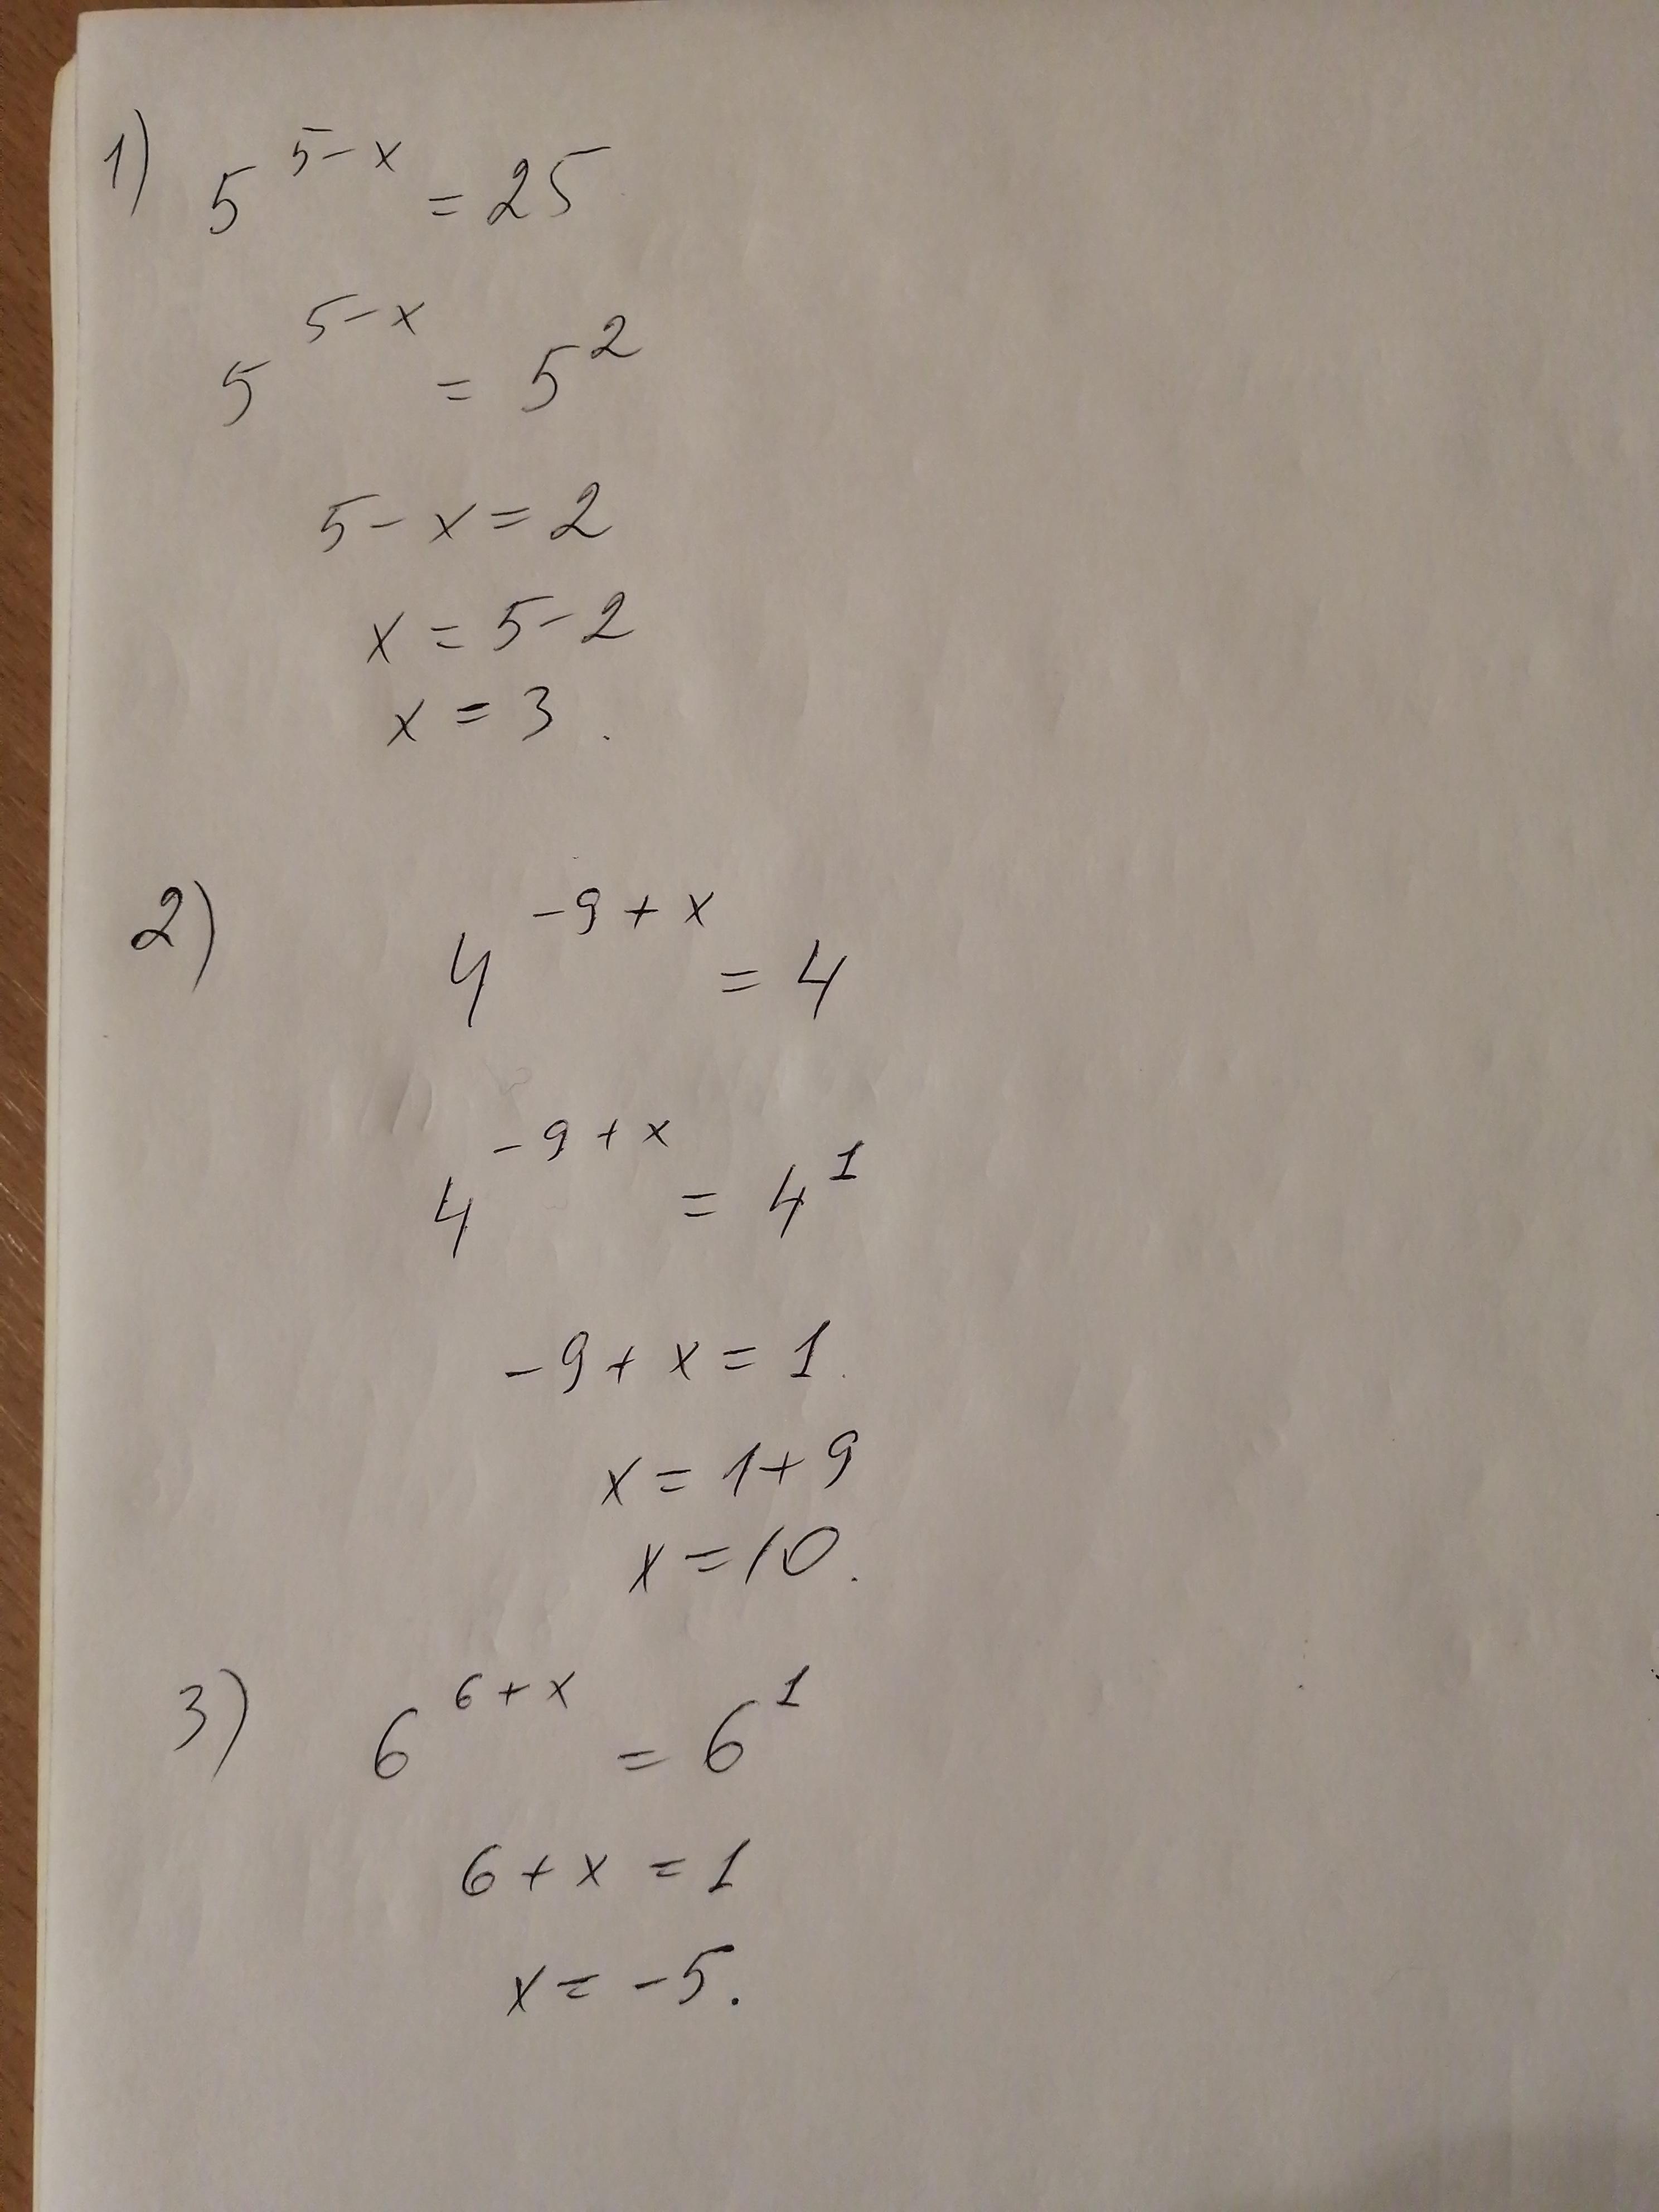 1) 5^{5-x} = 25
5^{5-x} = 5^2
5 - x = 2
x = 5 - 2
x = 3.
2) 4^{-9+x} = 4
4^{-9+x} = 4^1
-9 + x = 1.
x = 1 + 9
x = 10.
3) 6^{6+x} = 6^1
6 + x = 1
x = -5.